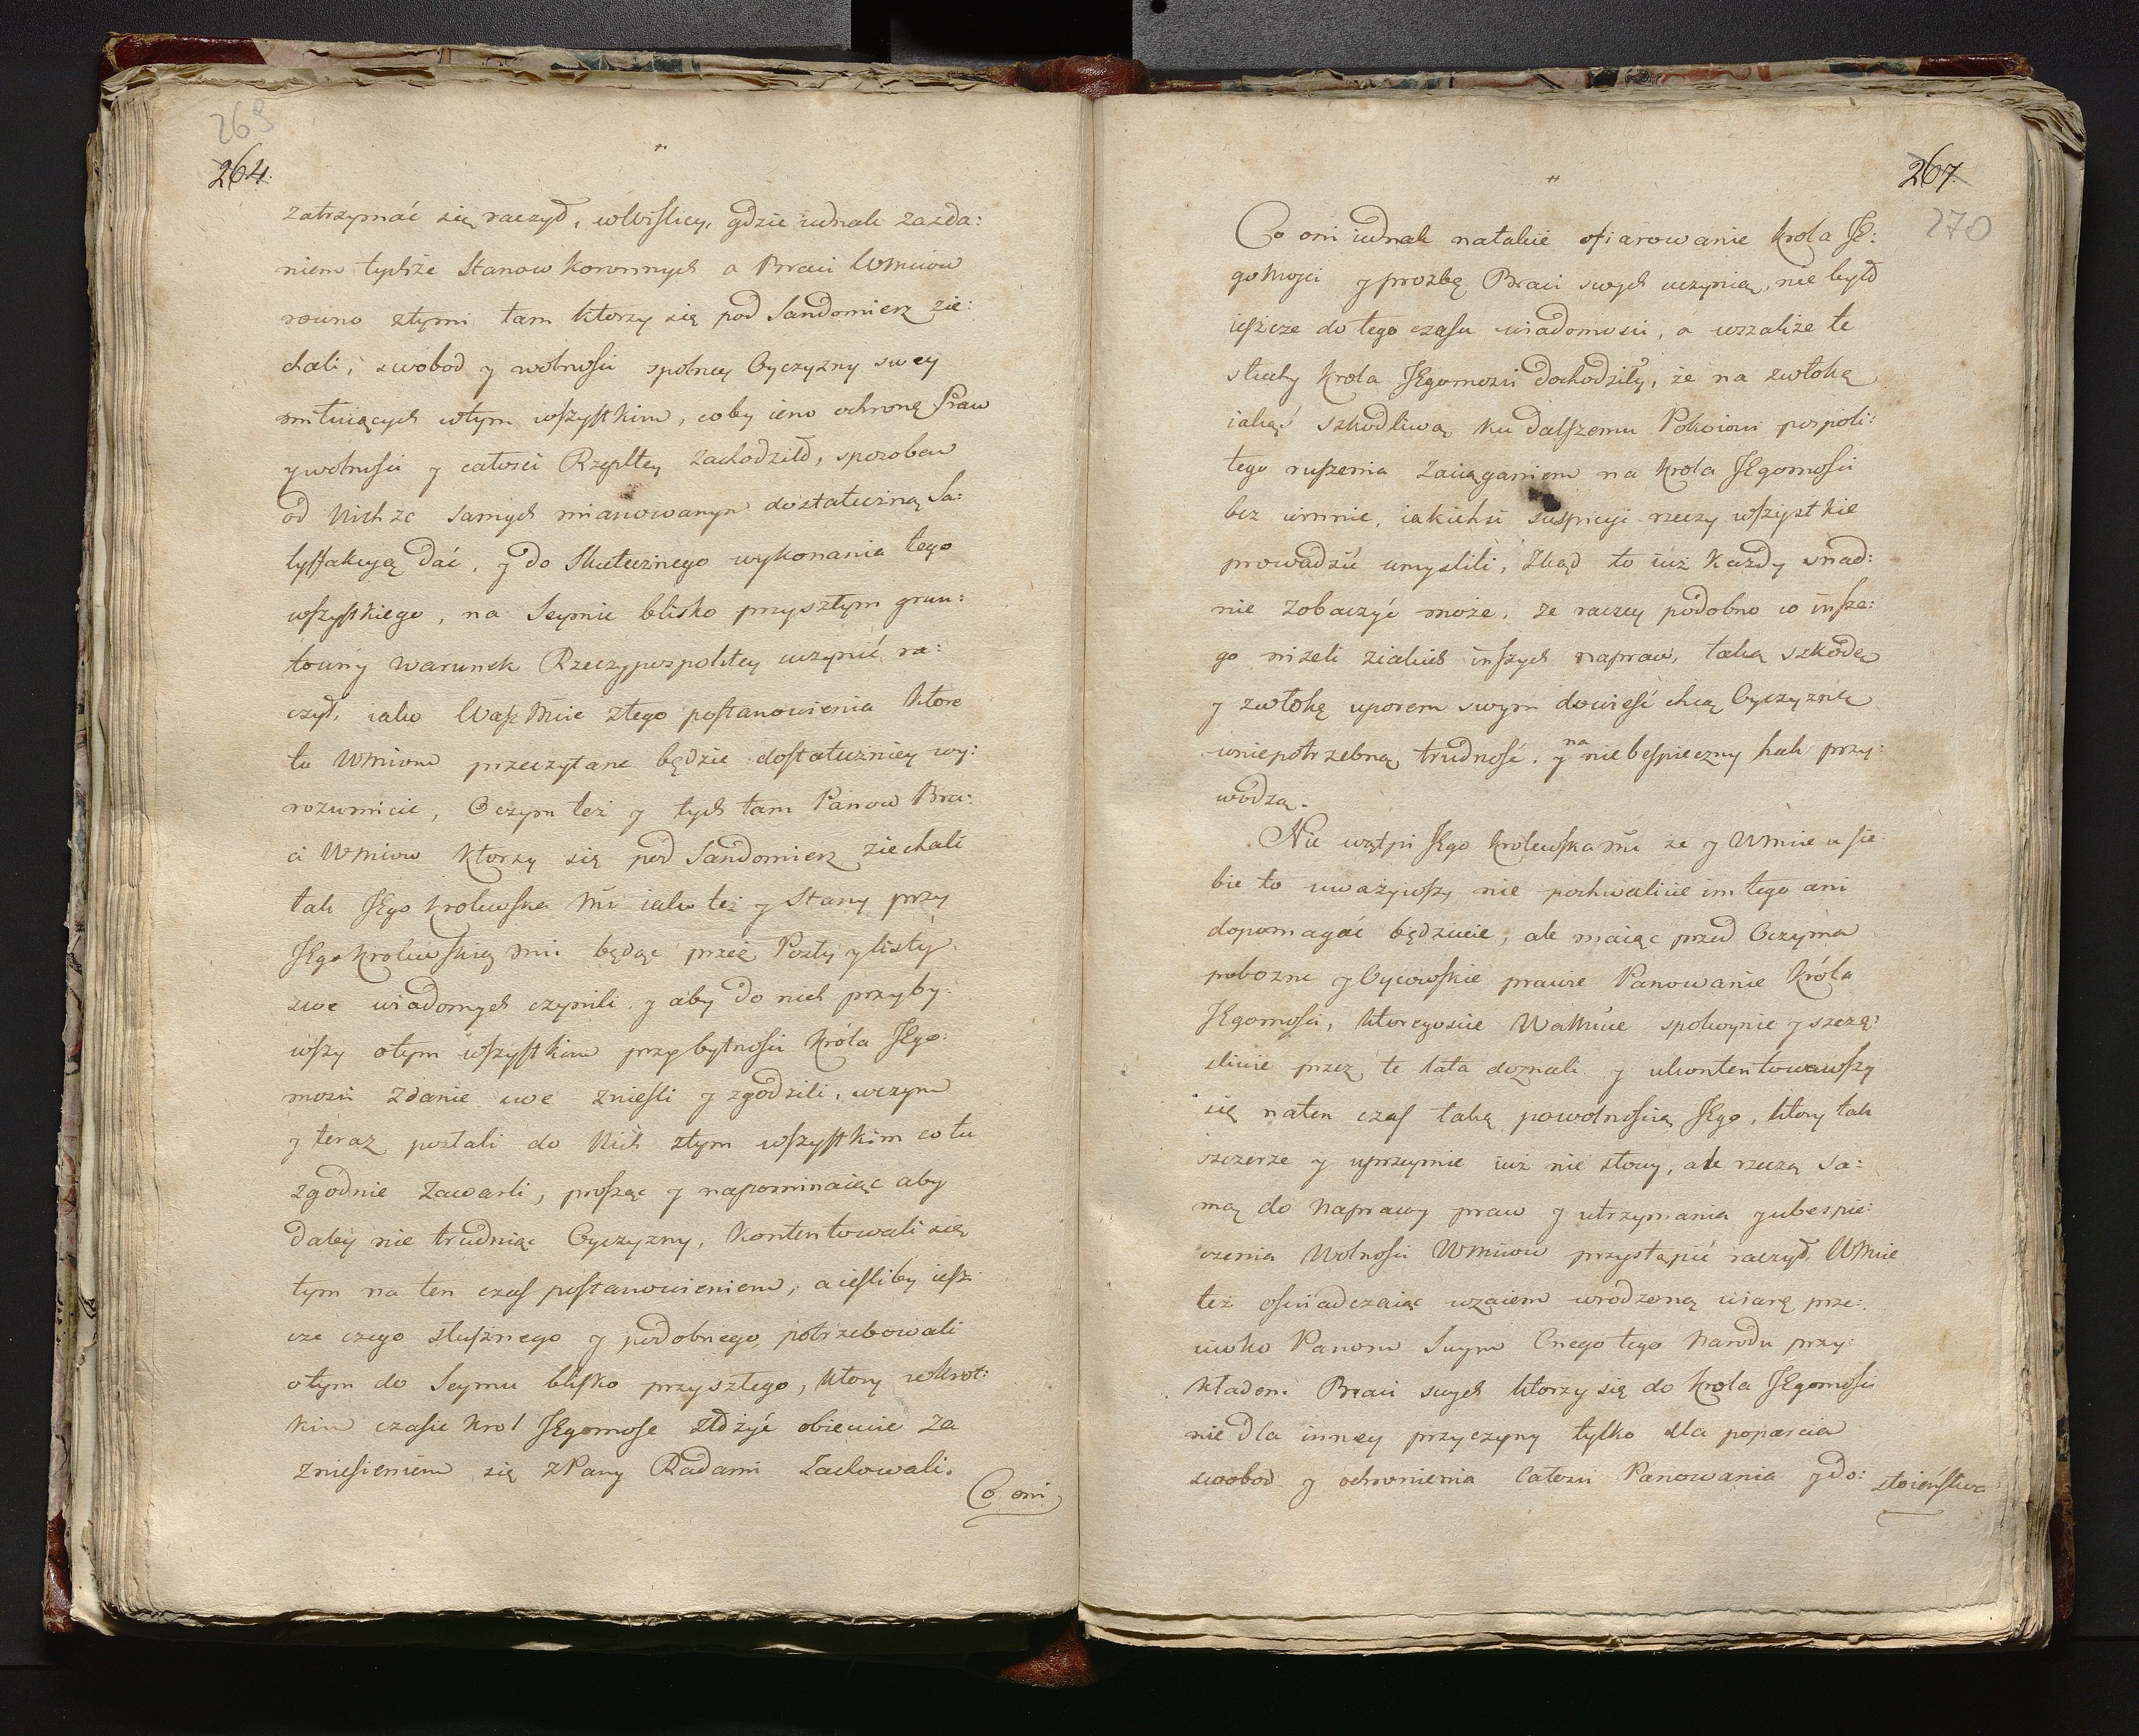 269
264.
zatrzymać się raczył, wWiślicy, gdzie iednak zażda:
niem tychże Stanow Koronnych a Braci WMciow
rowno ztymi tam ktorzy się pod Sandomierz zie:
chali, swobod y wolnosci spolney Oyczyzny swey
miłuiących wtym wszystkim, coby ieno ochronę Praw
ywolnosci y całosci Rzeplty zachodziło, sposobem
od Nichże samych mianowanym dostateczną Sa:
tysfakcyą dać, y do Skutecznego wykonania tego
wszystkiego, na Seymie blisko przyszłym grun:
towny warunek Rzeczypospolitey uczynić ra:
czył, iako Wasz Mcie ztego postanowienia ktore
tu WMciom przeczytane będzie dostateczniey wy:
rozumiecie, Oczym też y tych tam Panow Bra:
ci WMciow ktorzy się pod Sandomierz ziechali
tak JEgo Krolewska Mć iako też y Stany przy
JEgo Krolewskiey Mci będąc przez Posły y listy
swe wiadomych czynili y aby do nich przyby:
wszy otym wszystkim przybytnosci Króla JEgo:
mosci zdanie swe znieśli y zgodzili, wczym
y teraz posłali do Nich ztym wszystkim co tu
zgodnie zawarli, prosząc y napominaiąc aby
daley nie trudniąc Oyczyzny, kontentowali się
tym na ten czas postanowieniem, a iesliby iesz:
cze czego słusznego y podobnego, potrzebowali
otym do Seymu blisko przyszłego, ktory wkrot:
kim czasie Krol JEgomosc złożyć obiecuie za
zniesieniem się zPany Radami zachowali.
Co oni
267.
270
Co oni iednak natakie ofiarowanie Krola JE:
goMosci y prozbę Braci swych uczynią, nie było
ieszcze do tego czasu wiadomosci, a wszakże te
słuchy Krola JEgomosci dochodziły, że na zwłokę
iakąś szkodliwą ku dalszemu Pokoiowi pospoli:
tego ruszenia zaciąganiem na Krola JEgomosci
bez winnie, iakieksi suspicyi rzeczy wszystkie
prowadzić umyslili, Zkąd to iuż każdy snad:
nie zobaczyć może, że raczey podobno co insze:
go niżeli ziakich inszych napraw, taką szkodę
y zwłokę uporem swym dowieść chcą Oyczyznę
wniepotrzebną trudność, y na niebespieczny hak przy:
wodzą.
Nie wątpi JEgo Krolewska Mć że y WMcie u sie:
bie to uważywszy nie pochwalicie im tego ani
dopomagać będziecie, ale maiąc przed Oczyma
pobozne y Oycowskie prawie Panowanie Króla
JEgomosci, ktoregoscie WaMcie spokoynie y szczę:
sliwie przez te lata doznali y ukontentowawszy
się naten czas taką powolnością JEgo, ktory tak
szczerze y uprzeymie iuż nie słowy, ale rzeczą sa:
mą do naprawy praw y utrzymania y ubespie:
czenia Wolnosci WMciow przystąpić raczył, WMcie
też oswiadczaiąc wzaiem wrodzoną wiarę prze:
ciwko Panom Swym Cnego tego Narodu przy:
kładem Braci swych ktorzy się do Krola JEgomosci
nie dla inney przyczyny tylko dla poparcia
swobod y ochronienia Całosci Panowania y do:
stoieństwa